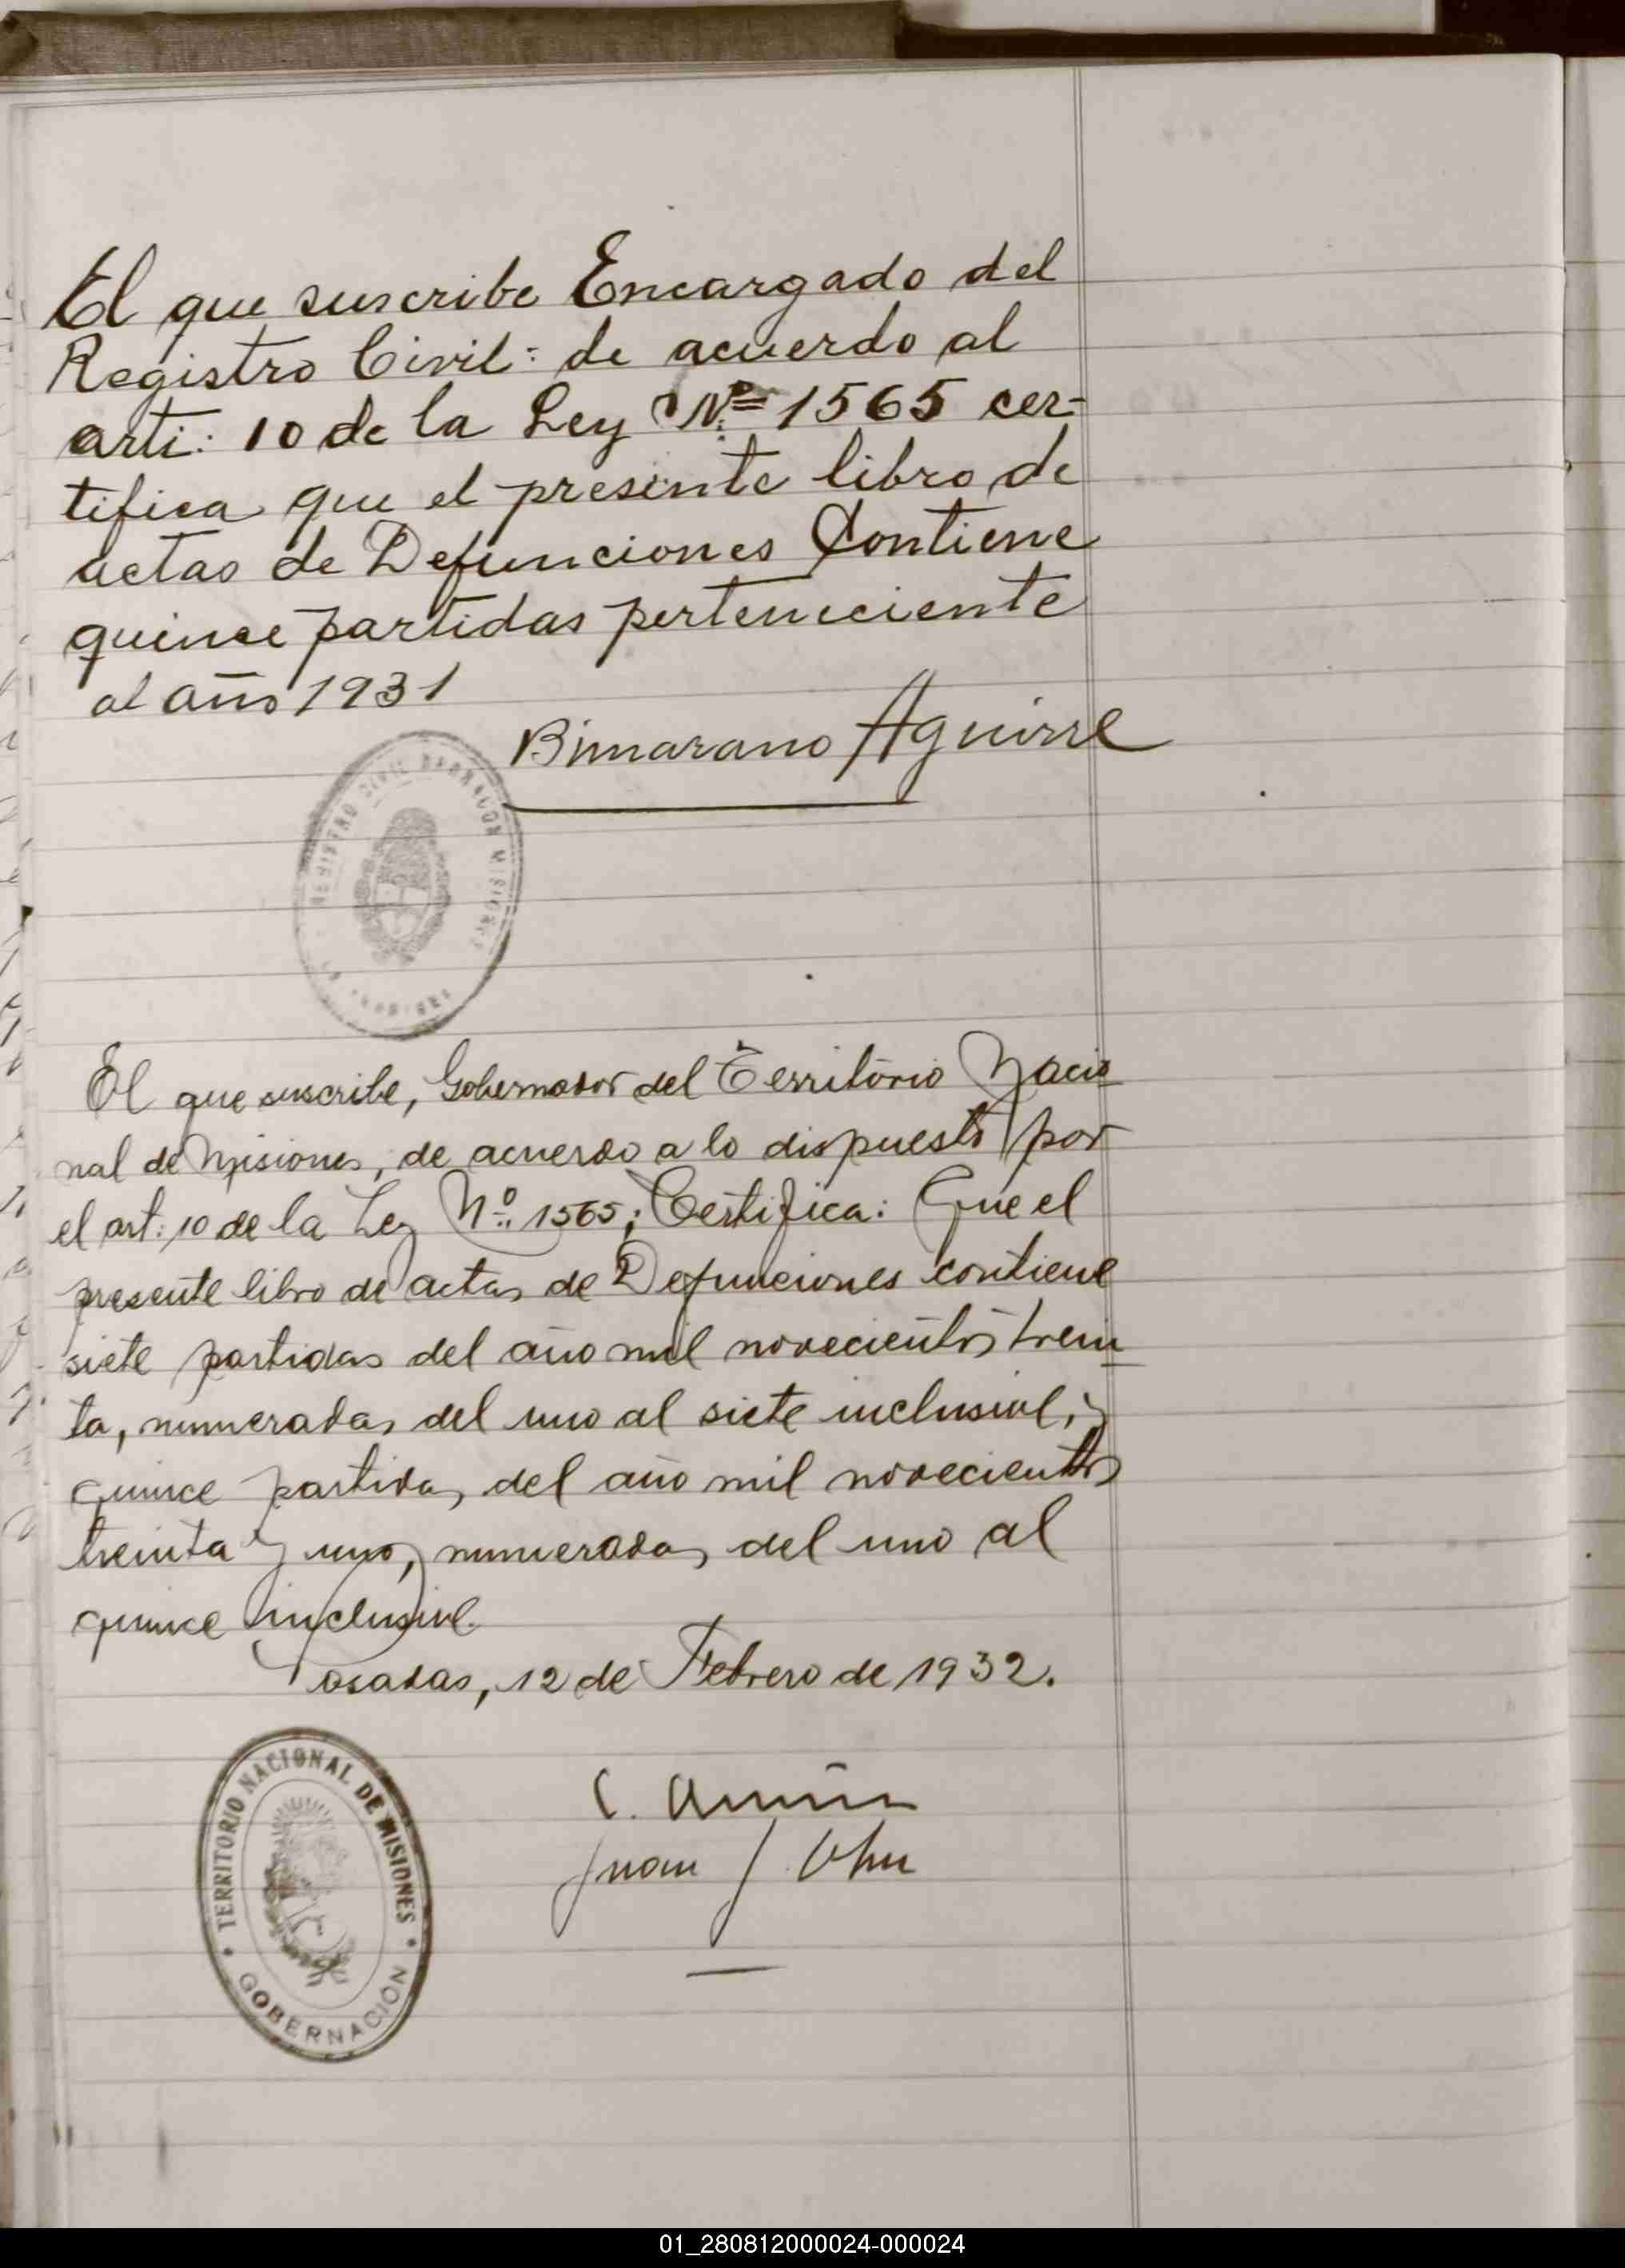 El que suscribe Encargado del
Registro Civil: de acuerdo al
arti: 10 de la Ley Nº 1565 cer-
tifica que el presente libro de
actas de Defunciones Contiene
quince partidas perteneciente
al año 1931
Aguirre
REGISTRO CIVIL BARRACON MISIONES
El que suscribe, Gobernador del Territorio Nacio
nal de Misiones, de acuerdo a lo dispuesto por
el art: 10 de la Ley Nº 1565; Certifica: Que el
presente libro de actas de Defunciones contiene
siete partidas del año mil novecientos trein
ta, numeradas del uno al siete inclusive, y
quince partidas del año mil novecientos
treinta y uno, numeradas del uno al
quince inclusive.
Posadas, 12 de Febrero de 1932.
TERRITORIO NACIONAL DE MISIONES
GOBERNACION
C.
Juan J.
01_280812000024-000024